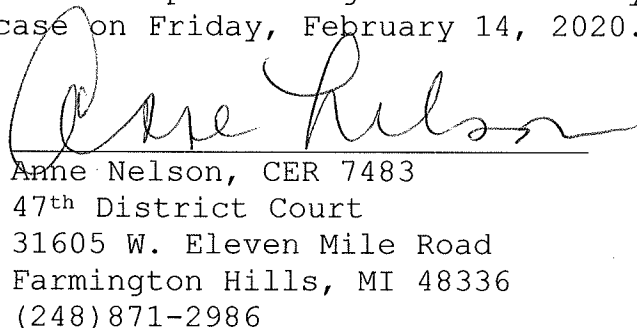 case on Friday, February 14, 2020.
Anne Nelson
Anne Nelson, CER 7483
47th District Court
31605 W. Eleven Mile Road
Farmington Hills, MI 48336
(248)871-2986